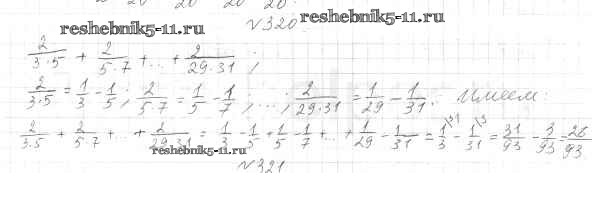 reshebnik5-11.ru
№320.
reshebnik5-11.ru
2/(3·5) + 2/(5·7) + ... + 2/(29·31);
2/(3·5) = 1/3 - 1/5; 2/(5·7) = 1/5 - 1/7; ...; 2/(29·31) = 1/29 - 1/31. Имеем:
2/(3·5) + 2/(5·7) + ... + 2/(29·31) = 1/3 - 1/5 + 1/5 - 1/7 + ... + 1/29 - 1/31 = 1/3 \31 - 1/31 \3 = 31/93 - 3/93 = 28/93.
reshebnik5-11.ru
№321